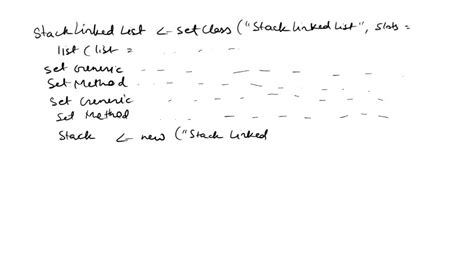 StackLinkedList <- setClass("StackLinkedList", slots =
list(list =
setGeneric - - - - - - - - - -
setMethod - - - - - - - - - -
setGeneric - - - - - - - - - -
setMethod - - - - - - - - -
Stack <- new ("Stack Linked